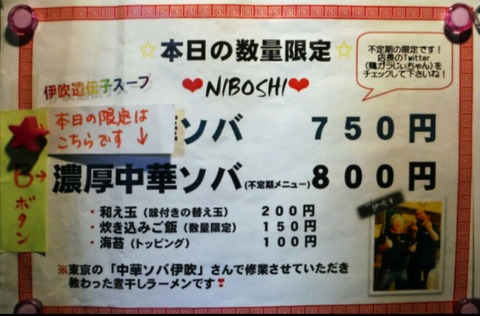 ☆本日の数量限定☆
不定期の限定です!
店長のTwitter
(鶏ガラじぃちゃん)を
チェックして下さいね!
伊吹遺伝子スープ
❤NIBOSHI❤
本日の限定は
こちらです↓
ソバ 750円
B→
ボタン
濃厚中華ソバ(不定期メニュー)800円
・和え玉(味付きの替え玉) 200円
・炊き込みご飯(数量限定) 150円
・海苔(トッピング) 100円
※東京の「中華ソバ伊吹」さんで修業させていただき
教わった煮干しラーメンです❣